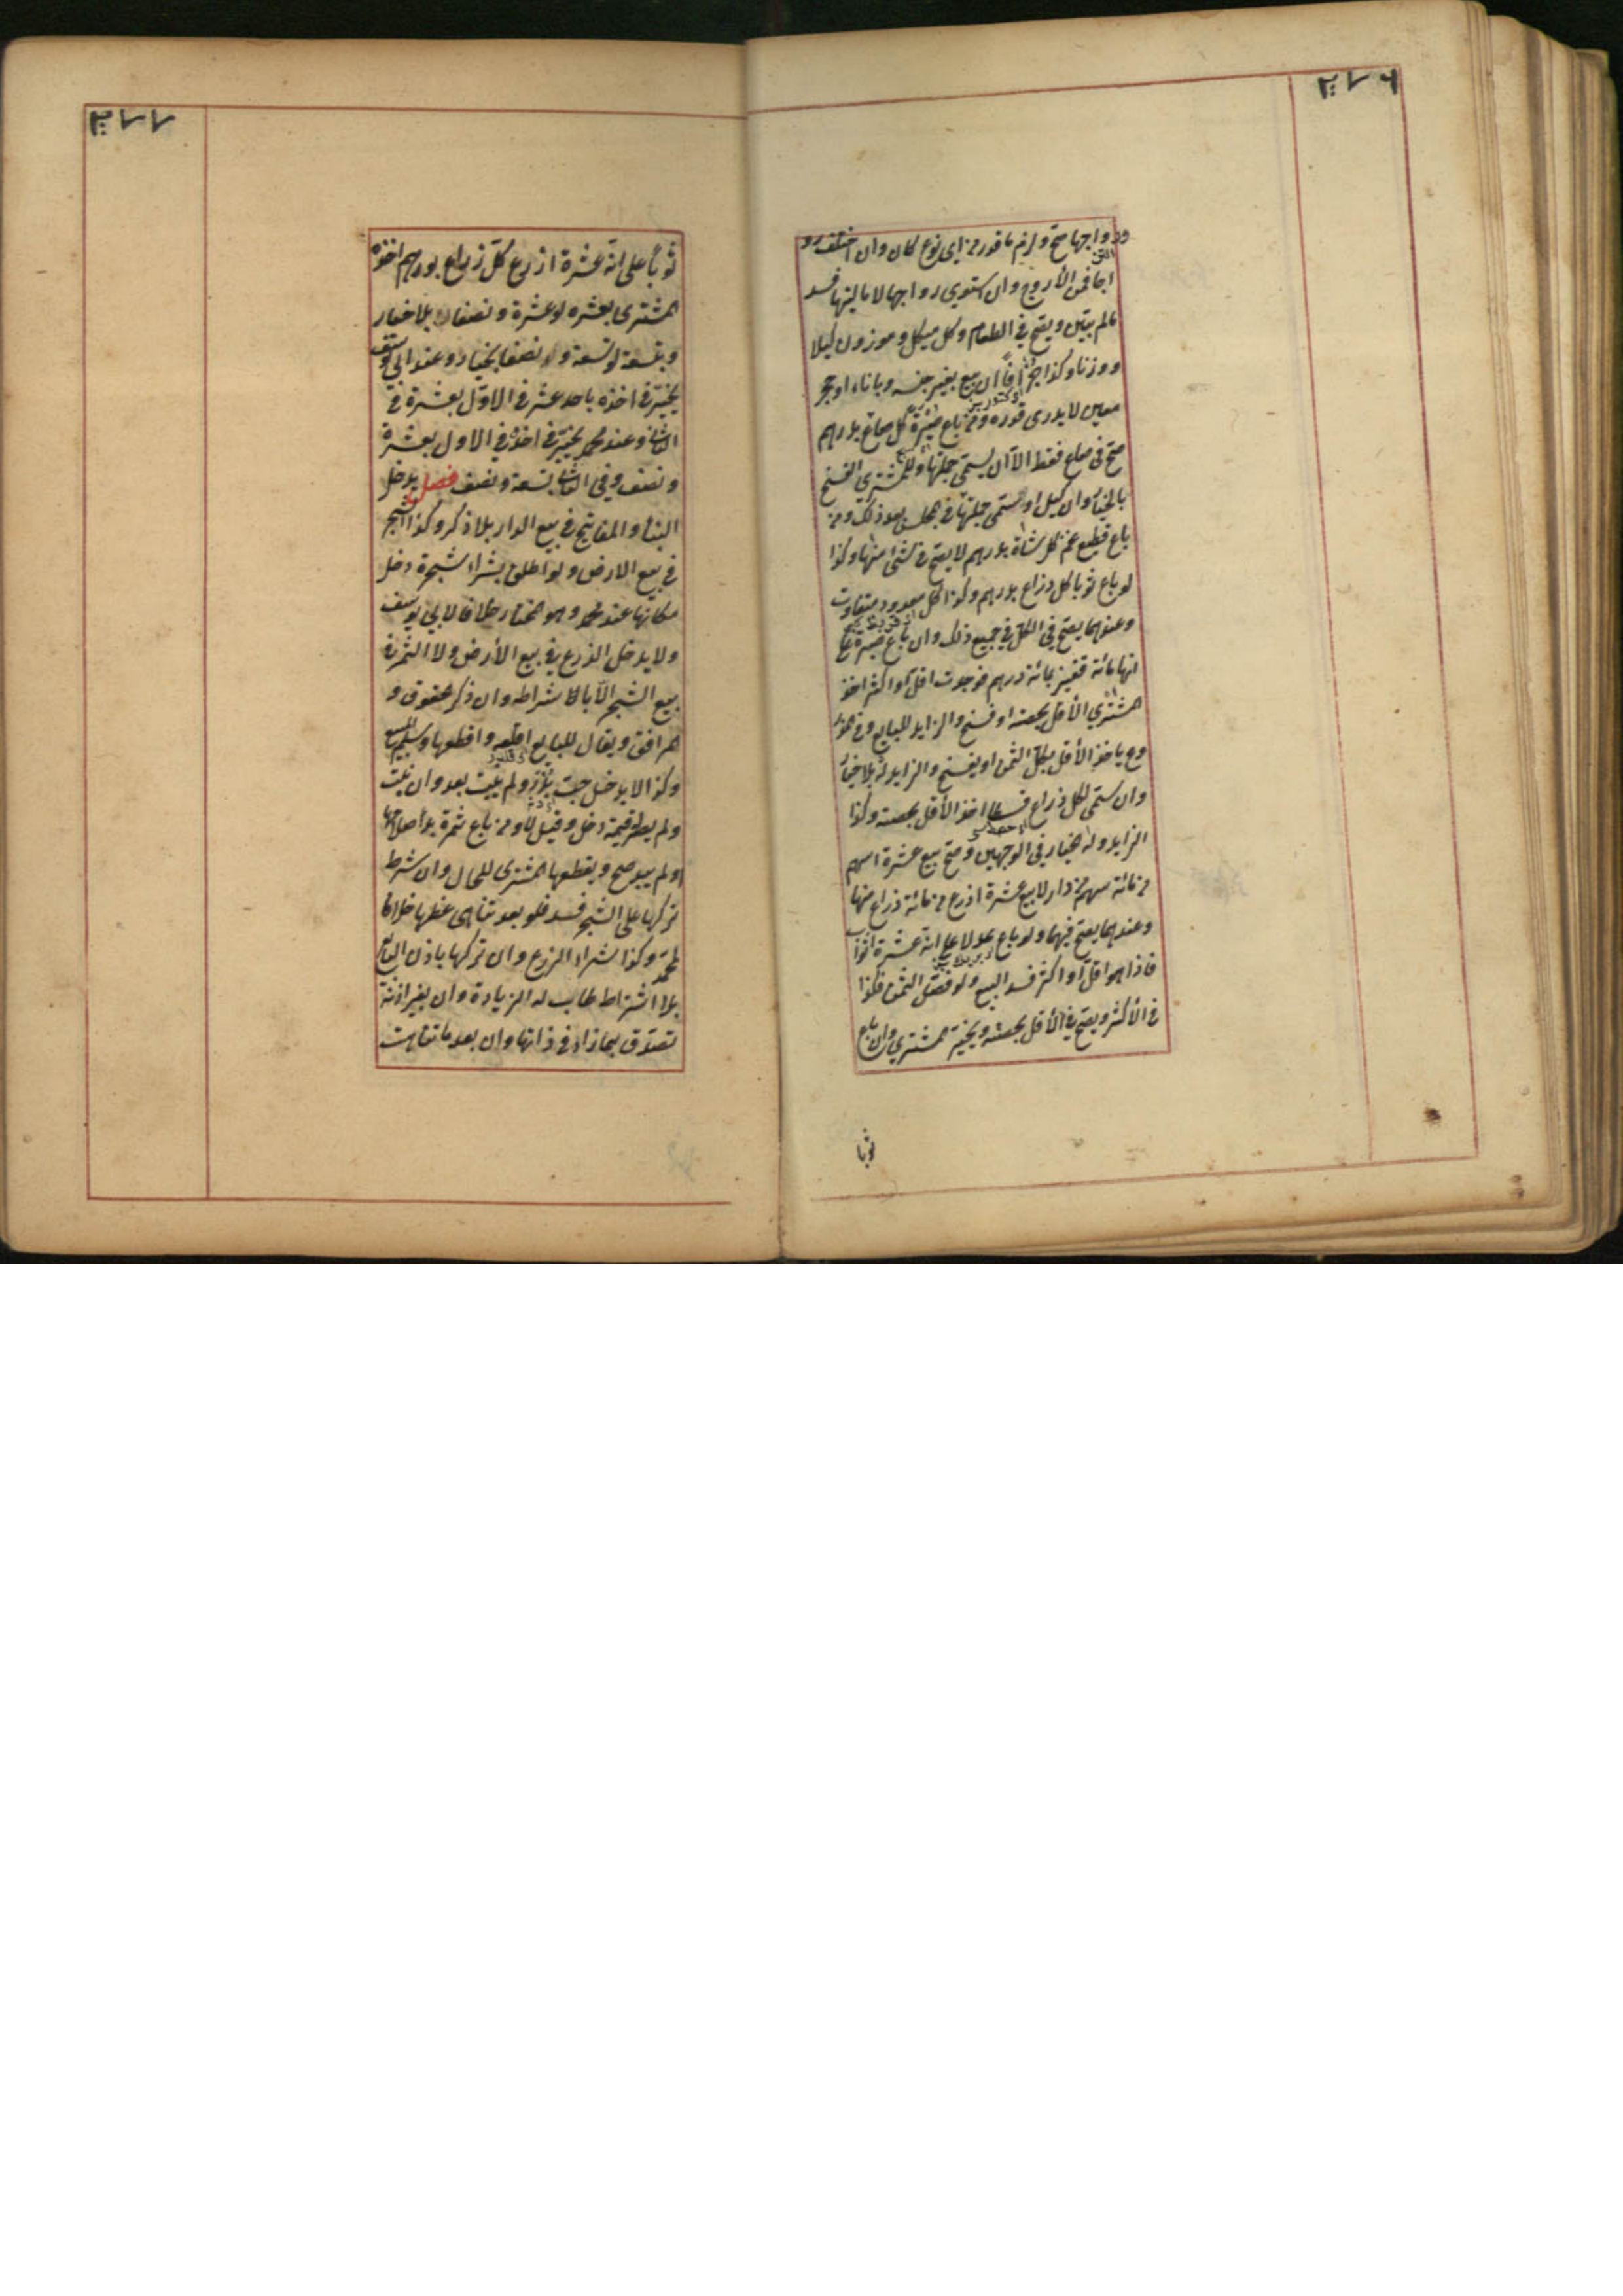 ٢٧٦
ورواجها صح ولزم ما قدر من اى نوع كان وان اختلف رو
اجها فمن الأروج وان استوى رواجها لا ماليتها فسد
مالم يبين ويصح في الطعام وكل مكيل وموزون كيلا
ووزنا وكذا جزافا ان بيع بغير جنسه وباناء او حجر
معين لا يدرى قدره ومن باع صبرة كل صاع بدرهم
صح في صاع فقط الا ان يسمى جملتها وللمشترى الفسخ
بالخيار وان كيل او سمى جملتها في المجلس بعد ذلك ومن
باع قطيع غنم كل شاة بدرهم لا يصح في شئ منها وكذا
لو باع ثوبا كل ذراع بدرهم وكذا كل معدود متفاوت
وعندهما يصح في الكل في جميع ذلك وان باع صبرة على
انها مائة قفيز بمائة درهم فوجدت اقل او اكثر اخذ
المشترى الأقل بحصته او فسخ والزايد للبايع وفى المذر
وع ياخذ الأقل بكل الثمن او يفسخ والزايد له بلا خيار
وان سمى لكل ذراع قسطا اخذ الأقل بحصته وكذا
الزايد وله الخيار في الوجهين وصح بيع عشرة اسهم
من مائة سهم من دار لا بيع عشرة اذرع من مائة ذراع منها
وعندهما يصح فيهما ولو باع عدلا على انه عشرة اثواب
فاذا هو اقل او اكثر فسد البيع ولو فصل الثمن فكذا
في الأكثر ويصح في الأقل بحصته ويخير المشترى وان باع
ثوبا
٢٧٧
ثوبا على انه عشرة اذرع كل ذراع بدرهم اخذه
المشترى بعشرة لو عشرة ونصفا بلا خيار
وبتسعة لو تسعة ونصفا بخيار وعند ابى يوسف
يخير في اخذه باحد عشر في الاول بعشرة في
الثانى وعند محمد يخير في اخذه في الاول بعشرة
ونصف وفى الثانى بتسعة ونصف فصل يدخل
البناء والمفاتيح في بيع الدار بلا ذكر وكذا الشجر
في بيع الارض ولو اطلق بشراء شجرة دخل
مكانها عند محمد وهو المختار خلافا لابى يوسف
ولا يدخل الزرع في بيع الأرض ولا الثمر في
بيع الشجر الا بالاشتراط وان ذكر الحقوق و
المرافق ويقال للبايع اقلعه واقطعها وسلم المبيع
وكذا لا يدخل حب بذر ولم ينبت بعد وان نبت
ولم يصر قيمة دخل وقيل لا ومن باع ثمرة بدا صلاحها
او لم يبد صح ويقطعها المشترى للحال وان شرط
تركها على الشجر فسد فلو بعد تناهى عظمها خلافا
لمحمد وكذا شراء الزرع وان تركها باذن البايع
بلا اشتراط طاب له الزيادة وان بغير اذنه
تصدق بما زاد في ذاتها وان بعد ما تناهت